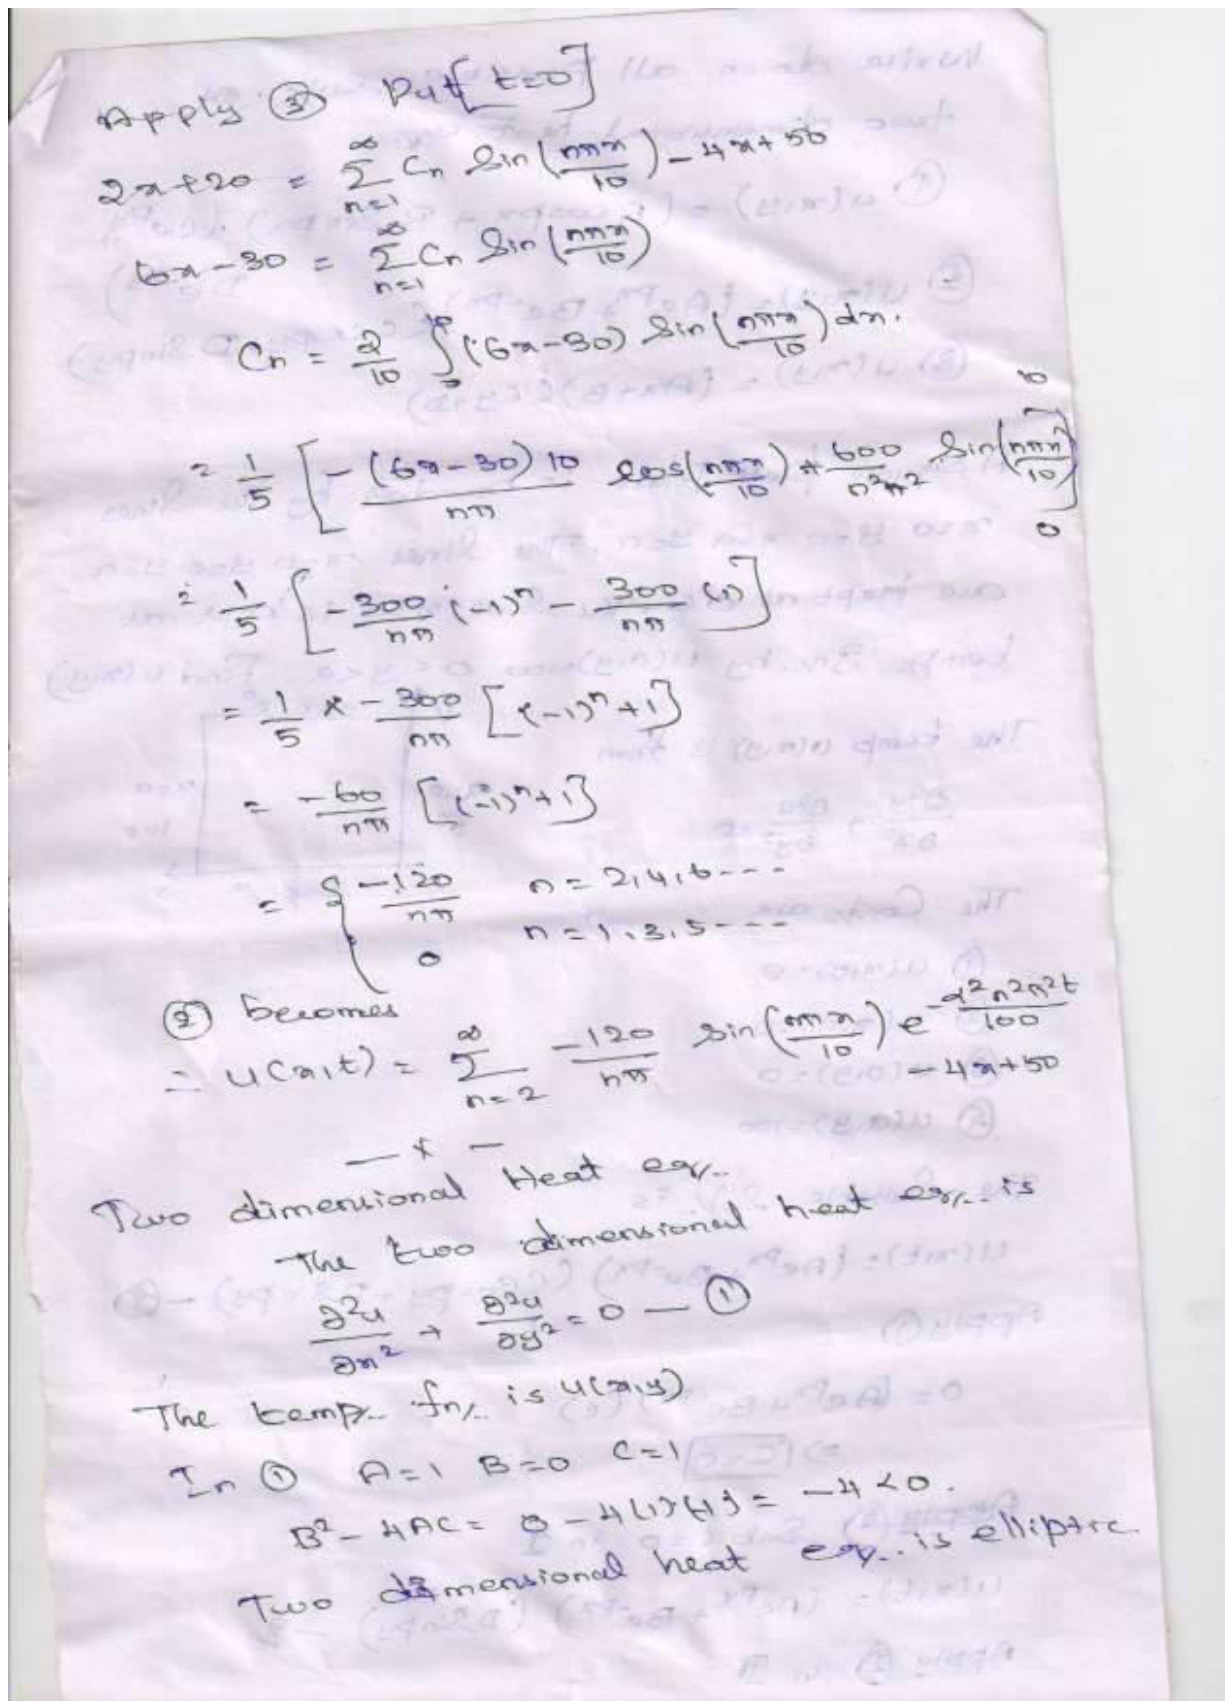 Apply ③ Put [t=0]
2x+20 = ∑_{n=1}^{∞} Cn Sin(nπx/10) - 4x + 50
6x-30 = ∑_{n=1}^{∞} Cn Sin(nπx/10)
Cn = 2/10 ∫_0^10 (6x-30) Sin(nπx/10) dx.
= 1/5 [ -(6x-30)10/nπ cos(nπx/10) + 600/n²π² Sin(nπx/10) ]_0^10
= 1/5 [ -300/nπ (-1)^n - 300/nπ (1) ]
= 1/5 × -300/nπ [(-1)^n + 1]
= -60/nπ [(-1)^n + 1]
= { -120/nπ n = 2,4,6---
0 n = 1,3,5---
② becomes
∴ u(x,t) = ∑_{n=2}^{∞} -120/nπ sin(nπx/10) e^{-α²n²π²t/100}
-4x+50
— x —
Two dimensional Heat eqn.
The two dimensional heat eqn. is
∂²u/∂x² + ∂²u/∂y² = 0 — ①
The temp. fn. is u(x,y)
In ① A=1 B=0 C=1
B² - 4AC = 0 - 4(1)(1) = -4 < 0.
Two dimensional heat eqn. is elliptic.